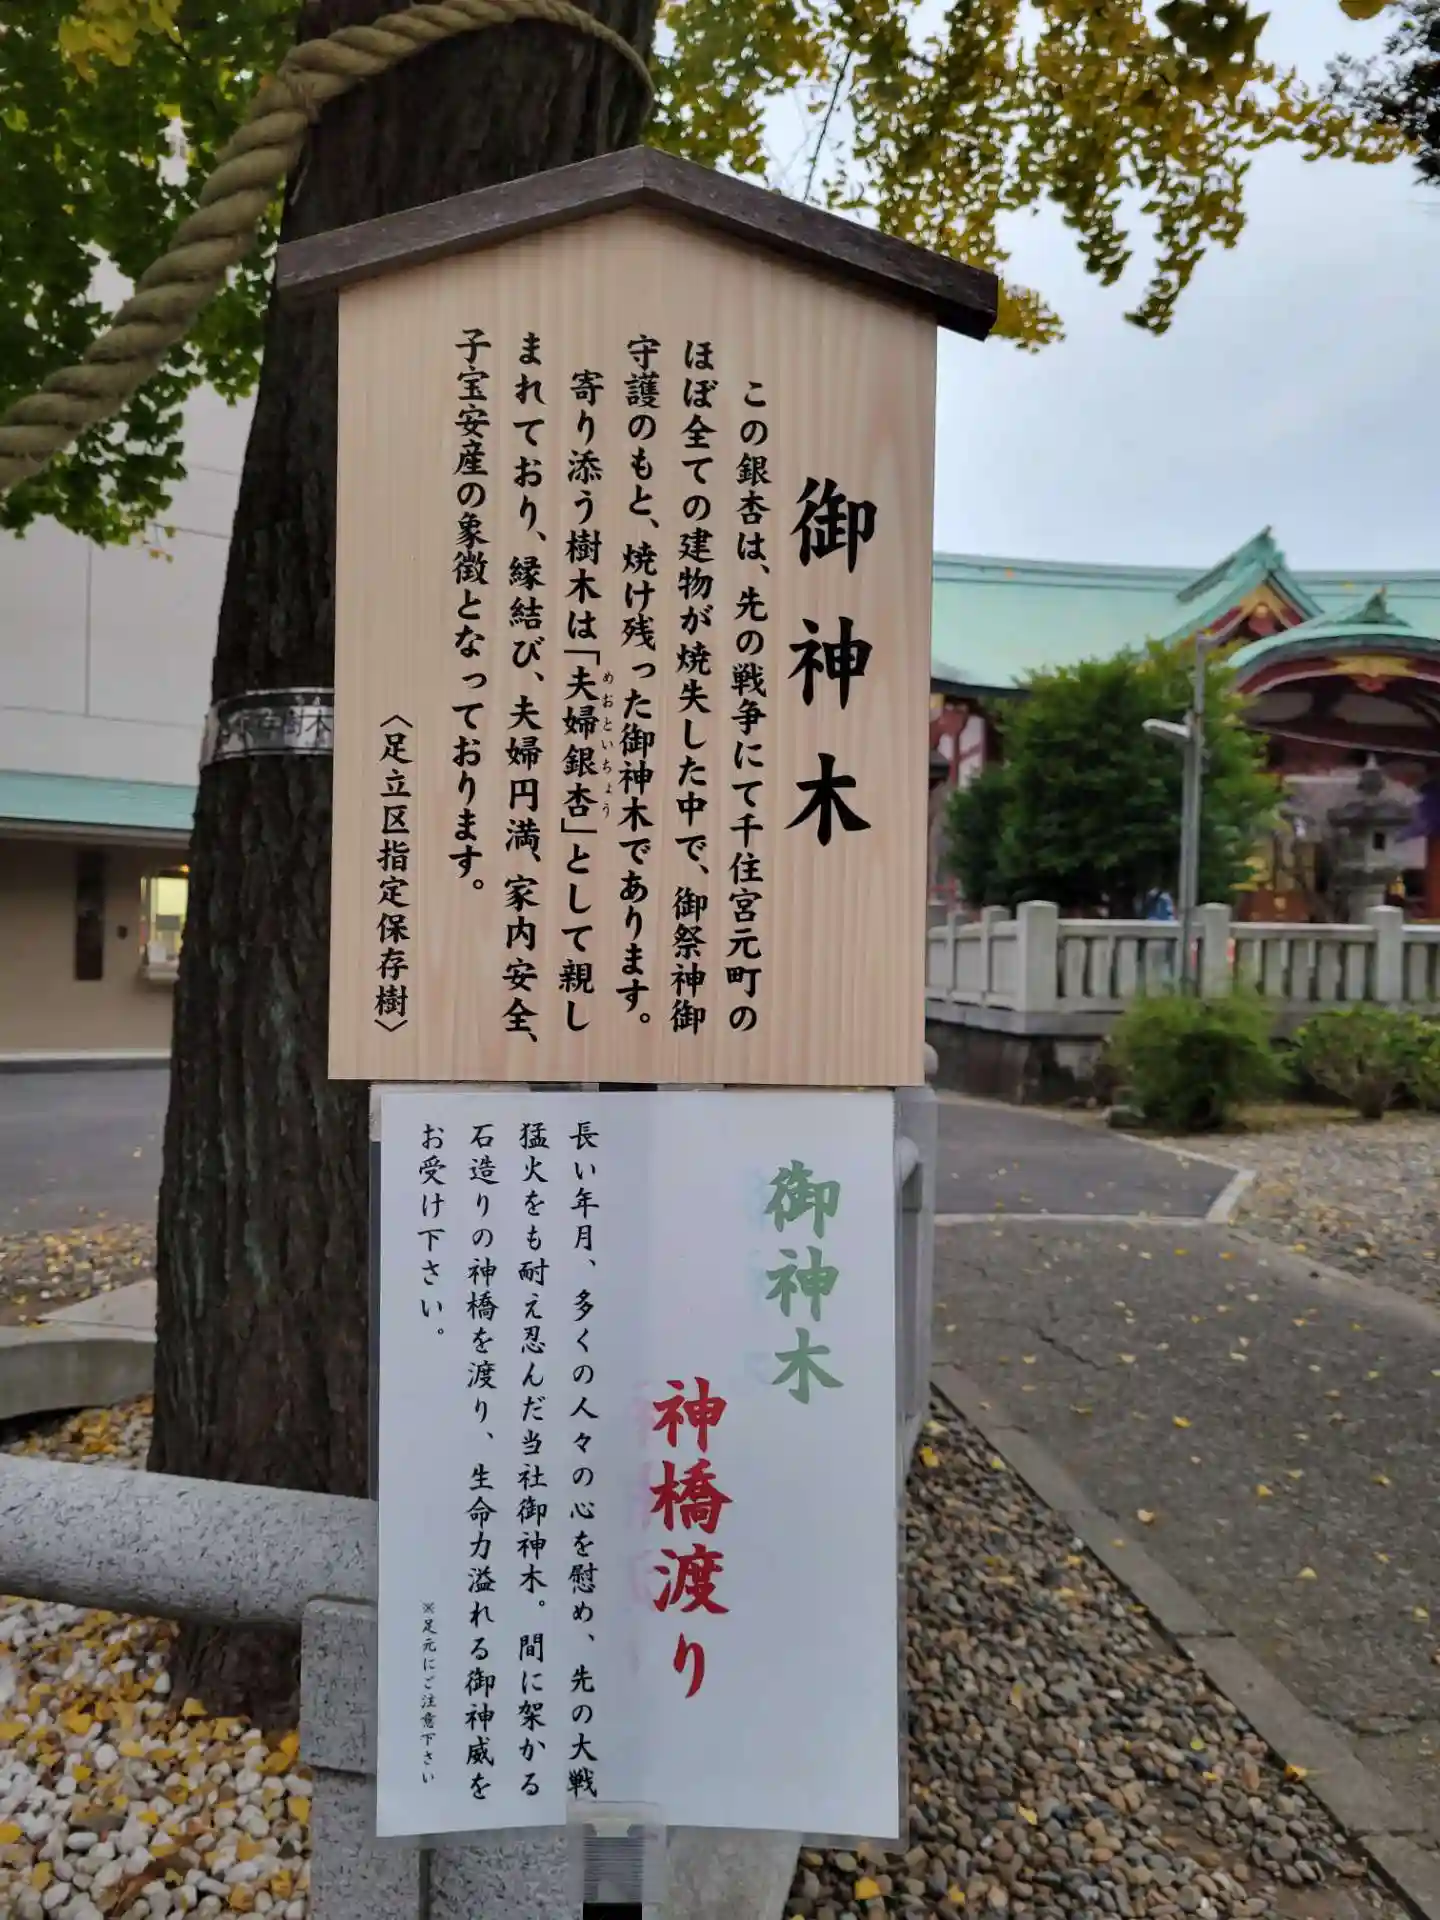 御神木
この銀杏は、先の戦争にて千住宮元町の
ほぼ全ての建物が焼失した中で、御祭神御
守護のもと、焼け残った御神木であります。
寄り添う樹木は「夫婦銀杏」として親し
めおといちょう
まれており、縁結び、夫婦円満、家内安全、
子宝安産の象徴となっております。
〈足立区指定保存樹〉
御神木
神橋渡り
長い年月、多くの人々の心を慰め、先の大戦
猛火をも耐え忍んだ当社御神木。間に架かる
石造りの神橋を渡り、生命力溢れる御神威を
お受け下さい。
※足元にご注意下さい
保存樹木